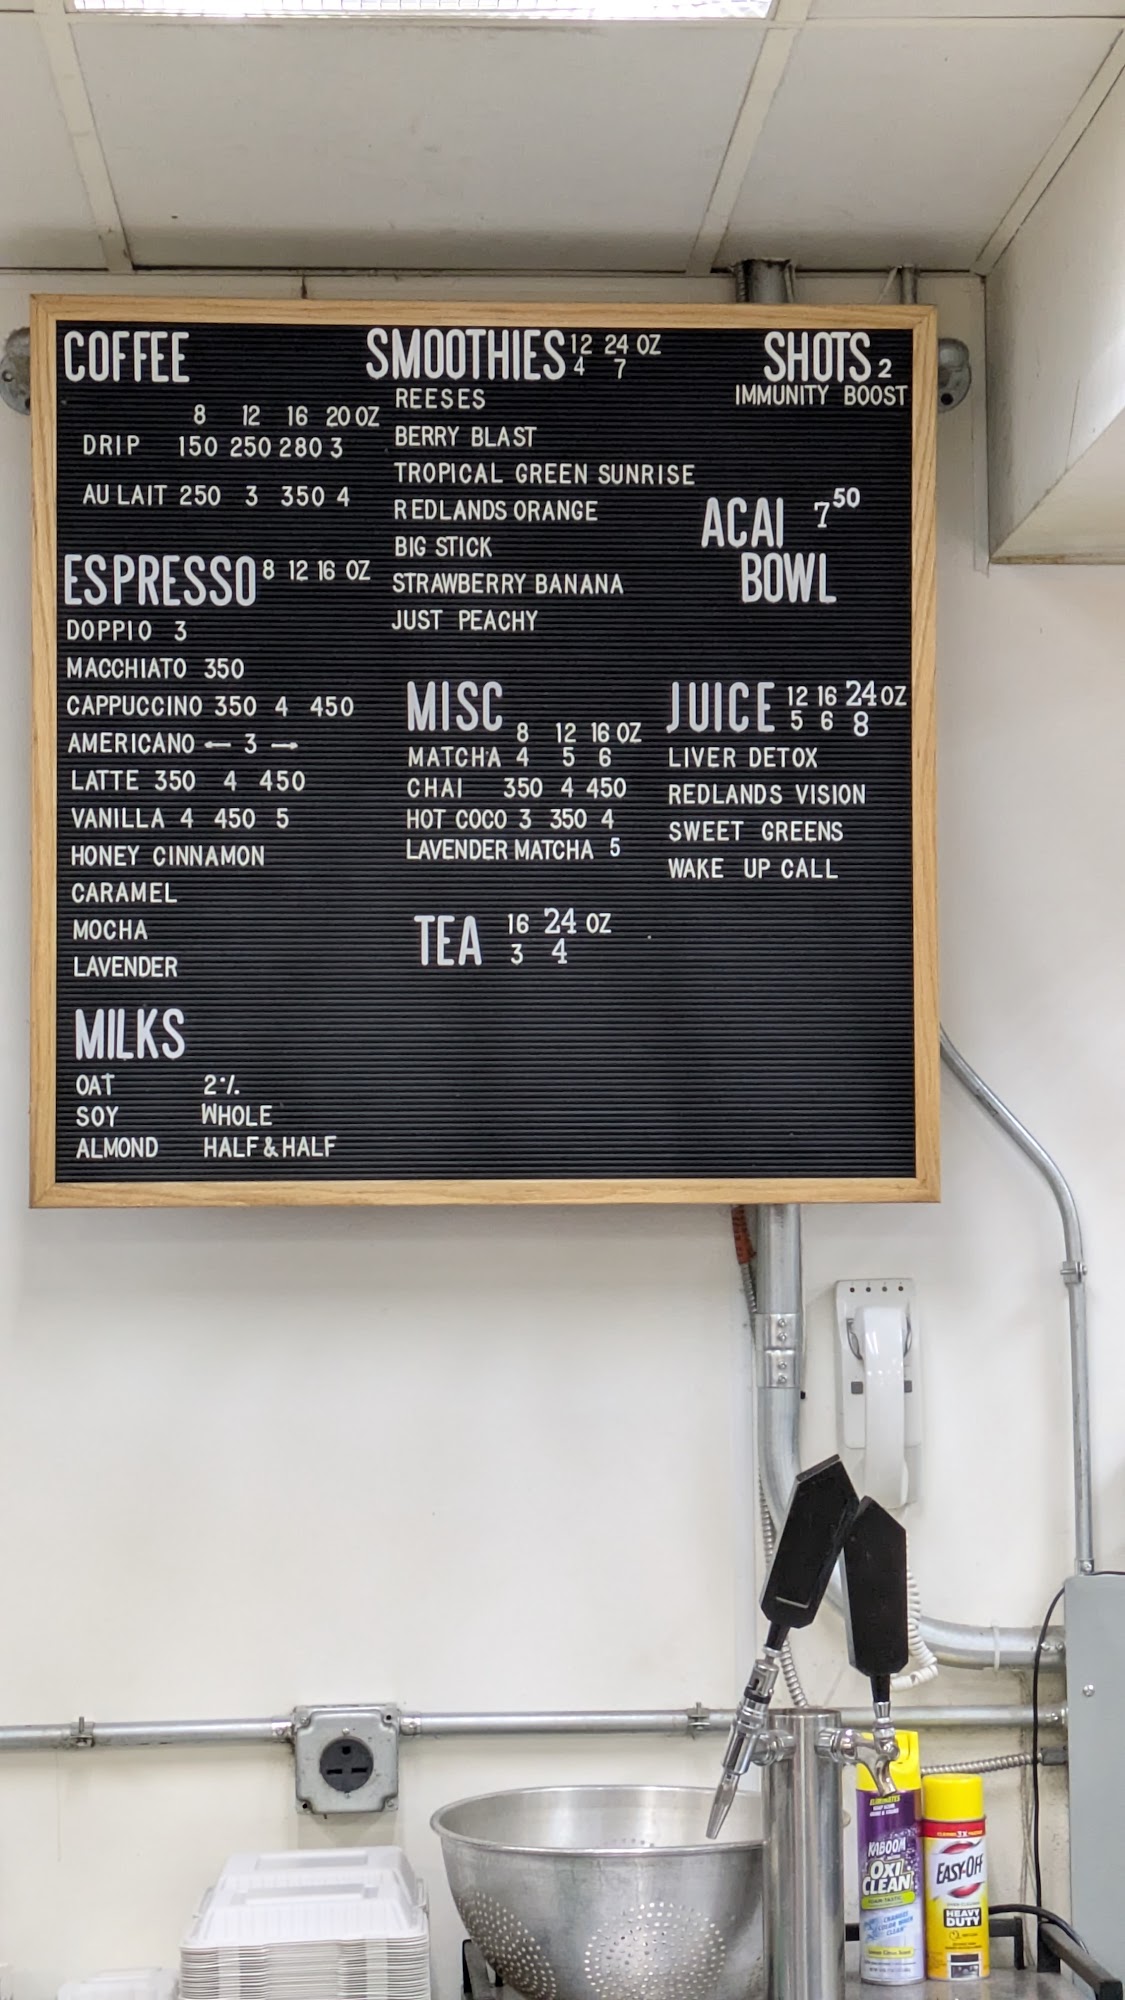 COFFEE
8 12 16 20 OZ
DRIP 150 250 280 3
AU LAIT 250 3 350 4
ESPRESSO 8 12 16 OZ
DOPPIO 3
MACCHIATO 350
CAPPUCCINO 350 4 450
AMERICANO ← 3 →
LATTE 350 4 450
VANILLA 4 450 5
HONEY CINNAMON
CARAMEL
MOCHA
LAVENDER
MILKS
OAT 2%
SOY WHOLE
ALMOND HALF & HALF
SMOOTHIES 12 24 OZ
4 7
REESES
BERRY BLAST
TROPICAL GREEN SUNRISE
REDLANDS ORANGE
BIG STICK
STRAWBERRY BANANA
JUST PEACHY
MISC 8 12 16 OZ
MATCHA 4 5 6
CHAI 350 4 450
HOT COCO 3 350 4
LAVENDER MATCHA 5
TEA 16 24 OZ
3 4
SHOTS 2
IMMUNITY BOOST
ACAI 7 50
BOWL
JUICE 12 16 24 OZ
5 6 8
LIVER DETOX
REDLANDS VISION
SWEET GREENS
WAKE UP CALL
ELIMINATES
KABOOM
OXI
CLEAN
EASY-OFF
HEAVY
DUTY